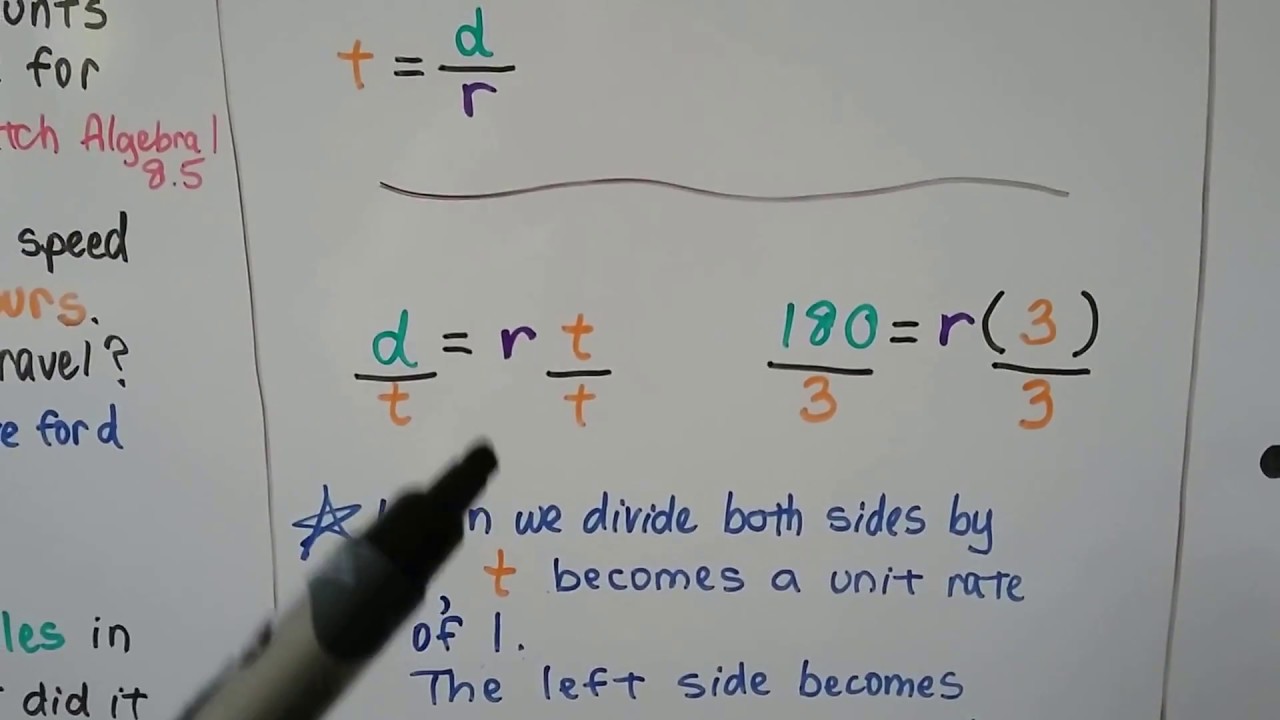 for
Algebra 1
8.5
speed
for d
in
did it
t = d/r
d/t = r t/t
180/3 = r(3)/3
we divide both sides by
t becomes a unit rate
of 1.
The left side becomes